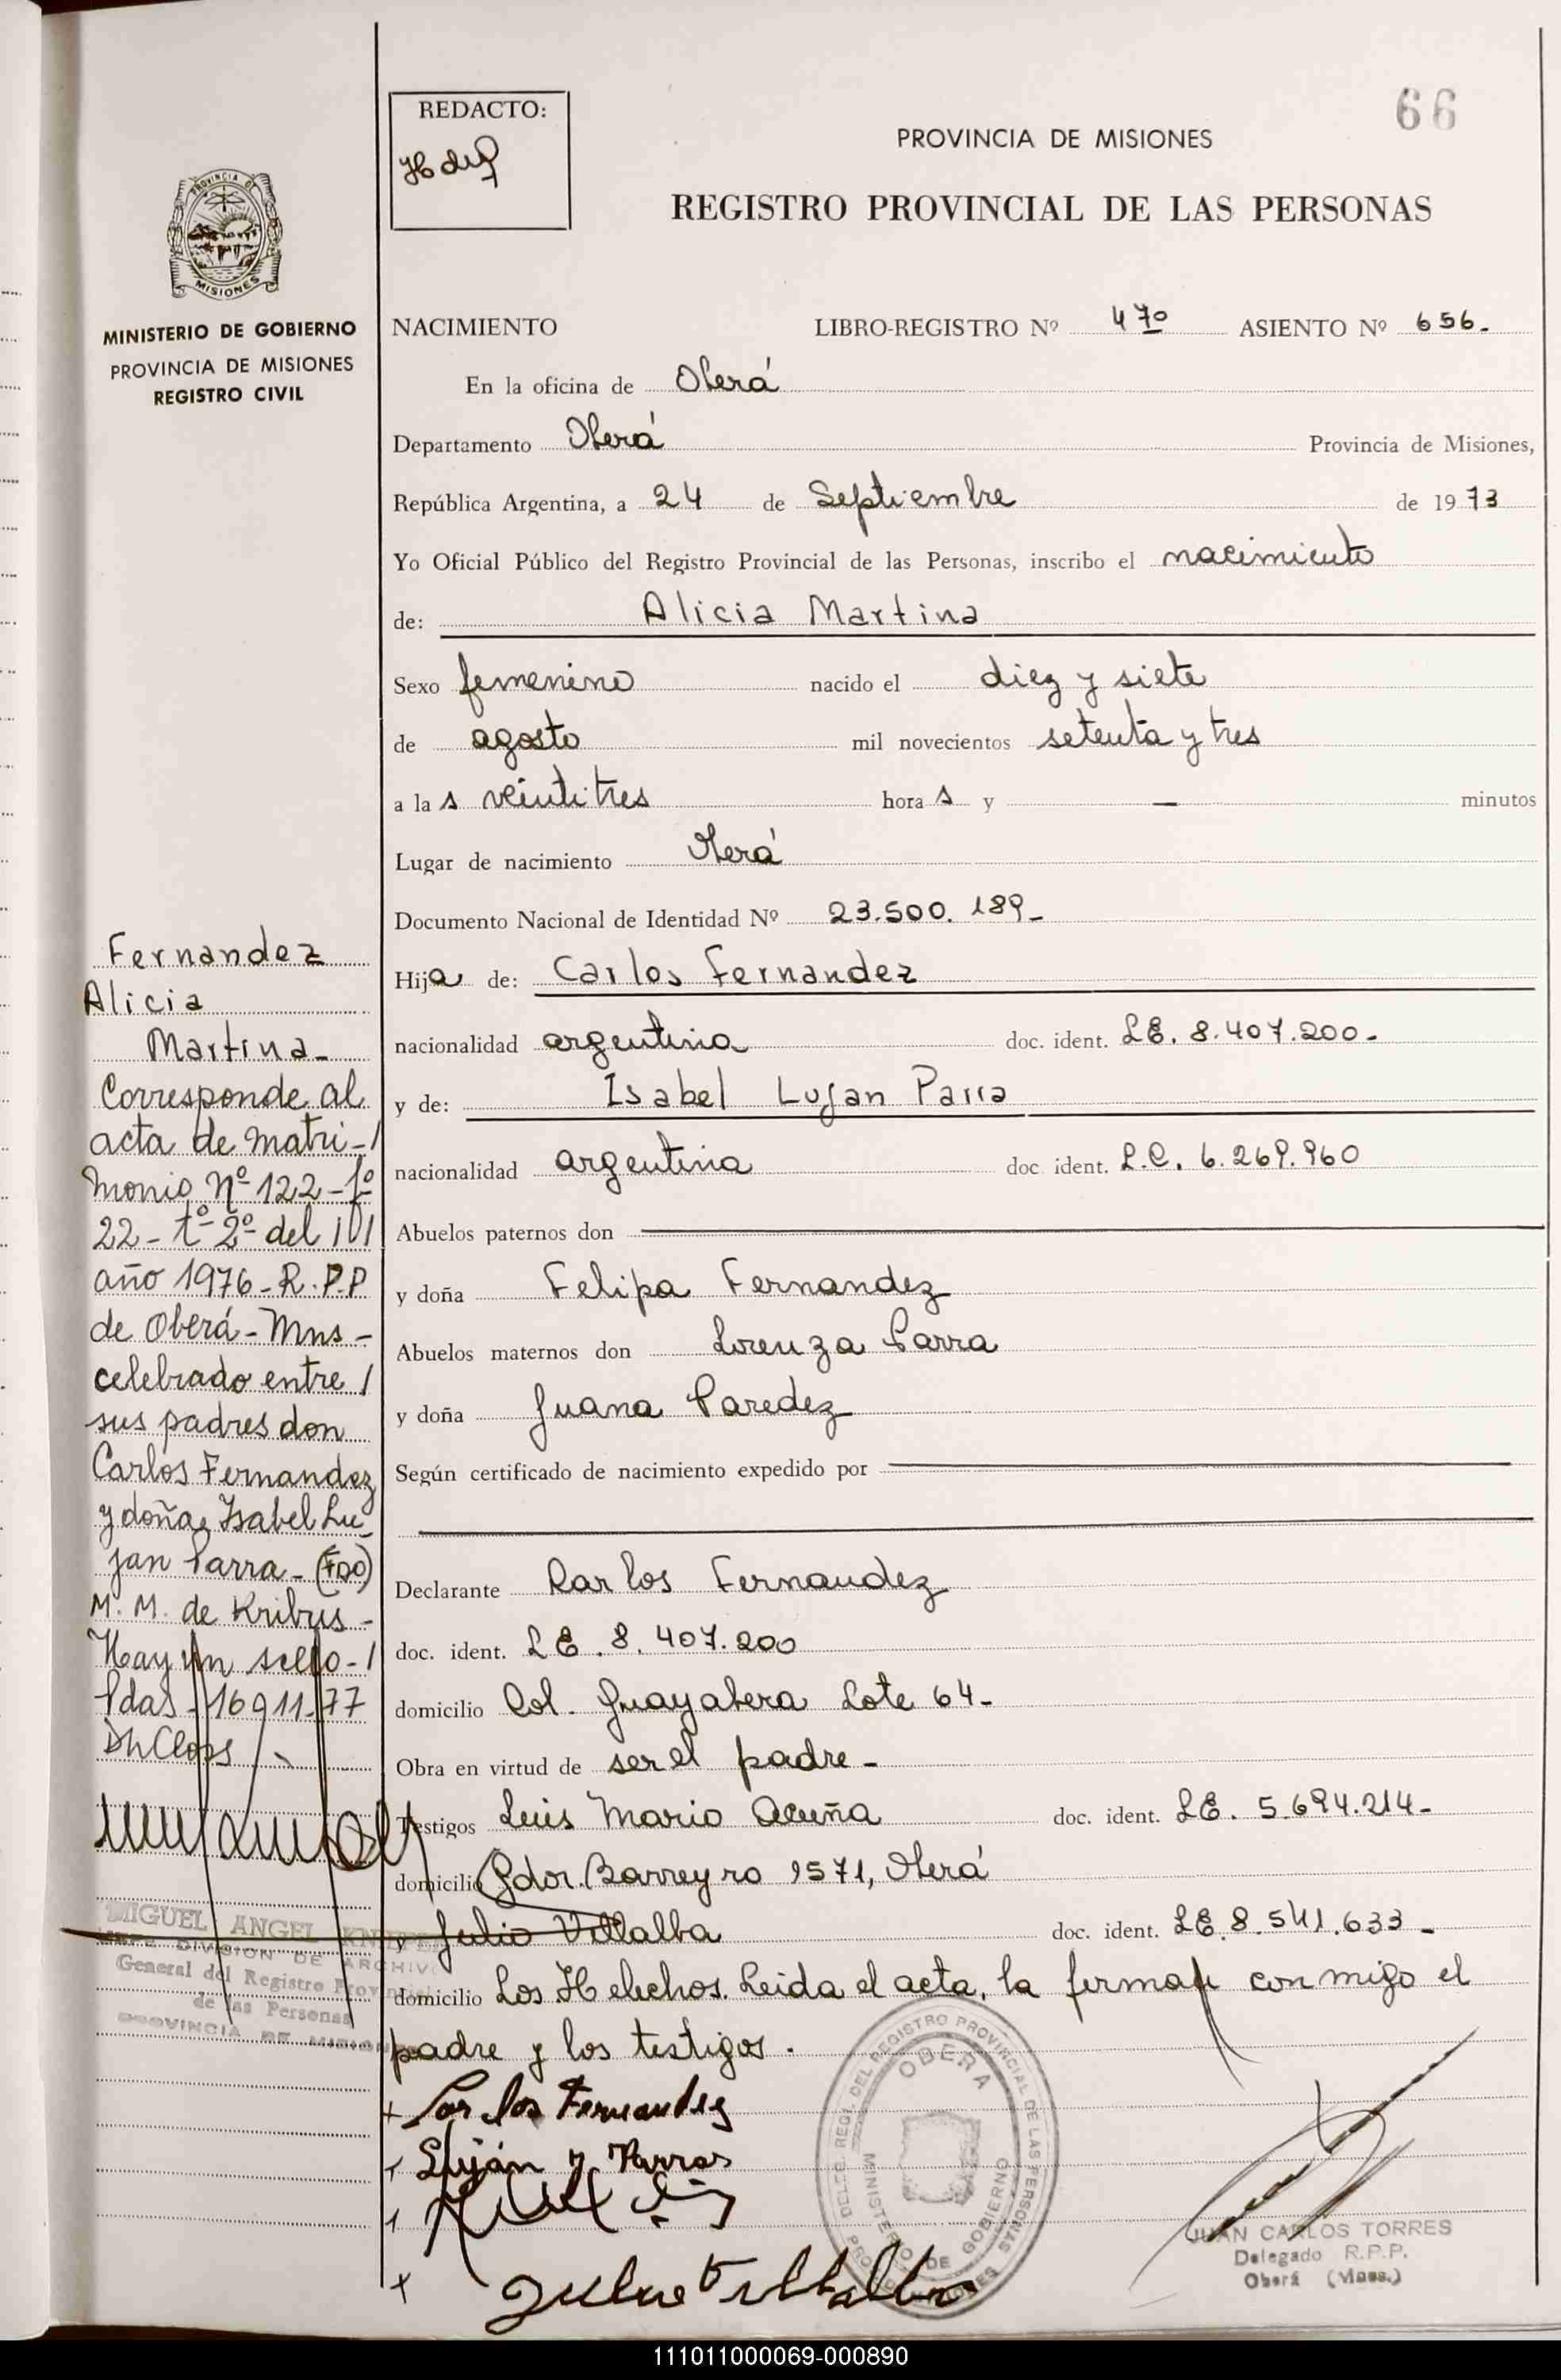 66
REDACTO:
PROVINCIA DE MISIONES
REGISTRO PROVINCIAL DE LAS PERSONAS
PROVINCIA DE
MISIONES
MINISTERIO DE GOBIERNO
PROVINCIA DE MISIONES
REGISTRO CIVIL
NACIMIENTO LIBRO-REGISTRO Nº 47º ASIENTO Nº 656.
En la oficina de Oberá
Departamento Oberá Provincia de Misiones,
República Argentina, a 24 de Septiembre de 1973
Yo Oficial Público del Registro Provincial de las Personas, inscribo el nacimiento
de: Alicia Martina
Sexo femenino nacido el diez y siete
de agosto mil novecientos setenta y tres
a las veintitres horas y — minutos
Lugar de nacimiento Oberá
Documento Nacional de Identidad Nº 23.500.189-
Hija de: Carlos Fernandez
nacionalidad argentina doc. ident. LE. 8.407.200-
y de: Isabel Lujan Parra
nacionalidad argentina doc. ident. L.C. 6.269.960
Abuelos paternos don
y doña Felipa Fernandez
Abuelos maternos don Lorenza Parra
y doña Juana Paredez
Según certificado de nacimiento expedido por
Declarante Carlos Fernandez
doc. ident. LE. 8.407.200
domicilio Col. Guayabera Lote 64-
Obra en virtud de ser el padre-
Testigos Luis Mario Acuña doc. ident. LE. 5.694.214-
domicilio Gdor. Barreyro 1571, Oberá
y Julio Villalba doc. ident. LE. 8.541.633-
domicilio Los Helechos. Leida el acta, la firman conmigo el
padre y los testigos.
Carlos Fernandez
Luján y Parras
Julio Villalba
Fernandez
Alicia
Martina-
Corresponde al
acta de matri-/
monio Nº 122-fº
22-tº-2º del /
año 1976-R.P.P
de Oberá-Mns-
celebrado entre /
sus padres don
Carlos Fernandez
y doña Isabel Lu-
jan Parra-(FDO)
M. M. de Kribus-
Hay un sello-/
Pdas-16911-77
MIGUEL ANGEL
JEFE DIVISION DE ARCHIVO
General del Registro Provincial
de las Personas
PROVINCIA DE MISIONES
DELEG. REGL. DEL REGISTRO PROVINCIAL DE LAS PERSONAS
OBERA
MINISTERIO DE GOBIERNO
JUAN CARLOS TORRES
Delegado R.P.P.
Oberá (Mnes.)
111011000069-000890